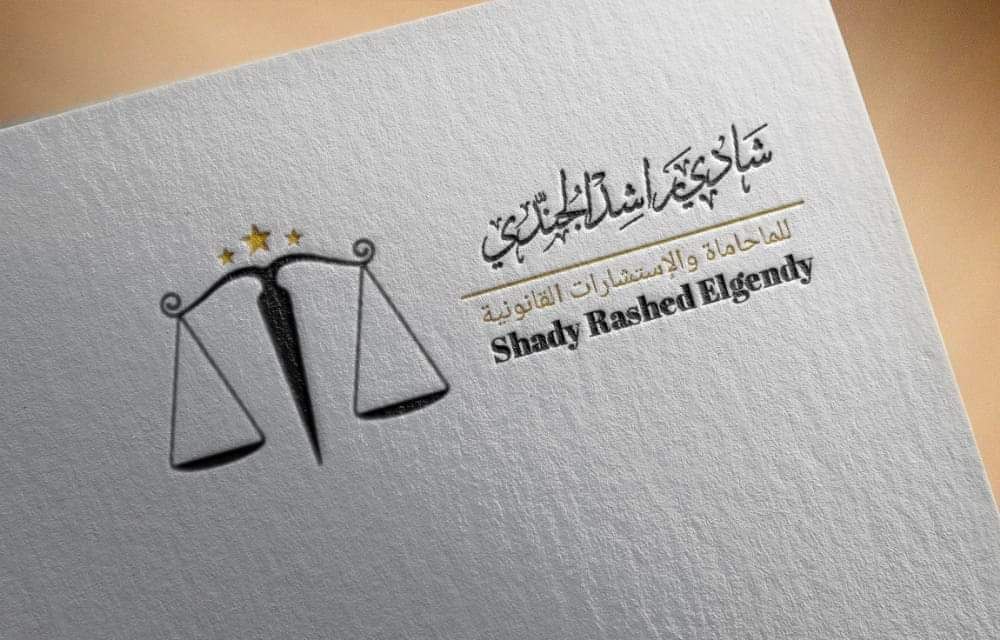 شادي راشد الجندي
للماحاماة والإستشارات القانونية
Shady Rashed Elgendy